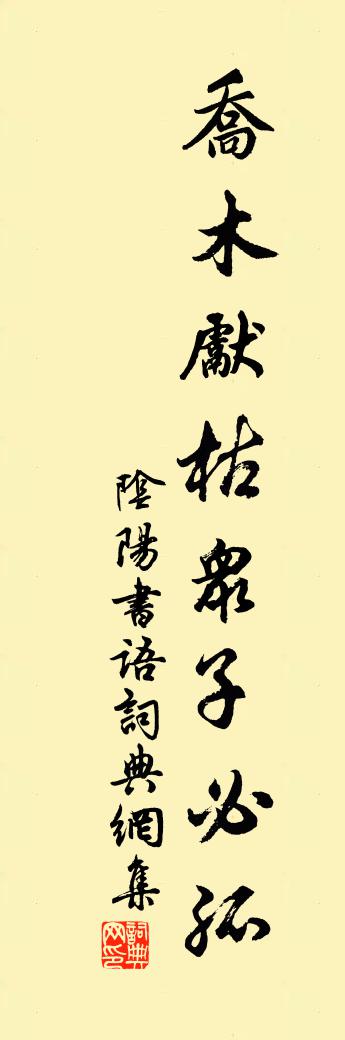 喬木獻枯衆子必孤
陰陽書語詞典網集
詞典网印